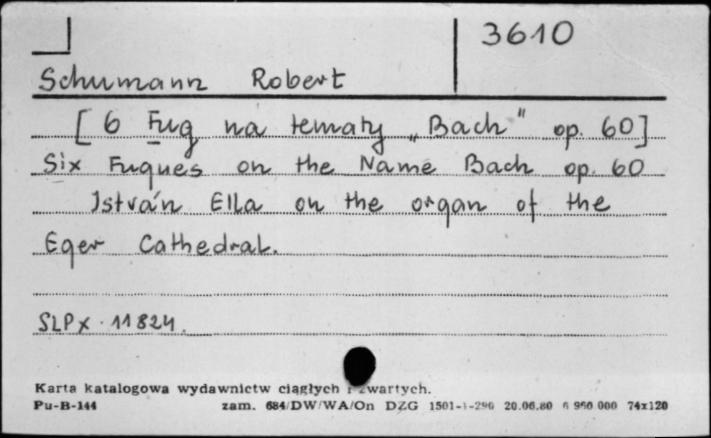 3610
Schumann Robert
[6 Fug na tematy „Bach" op. 60]
Six Fugues on the Name Bach op. 60
István Ella on the organ of the
Eger Cathedral.
SLPX 11824.
Karta katalogowa wydawnictw ciągłych i zwartych.
Pu-B-144 zam. 684/DW/WA/On DZG 1501-1-290 20.06.80 6 960 000 74x120